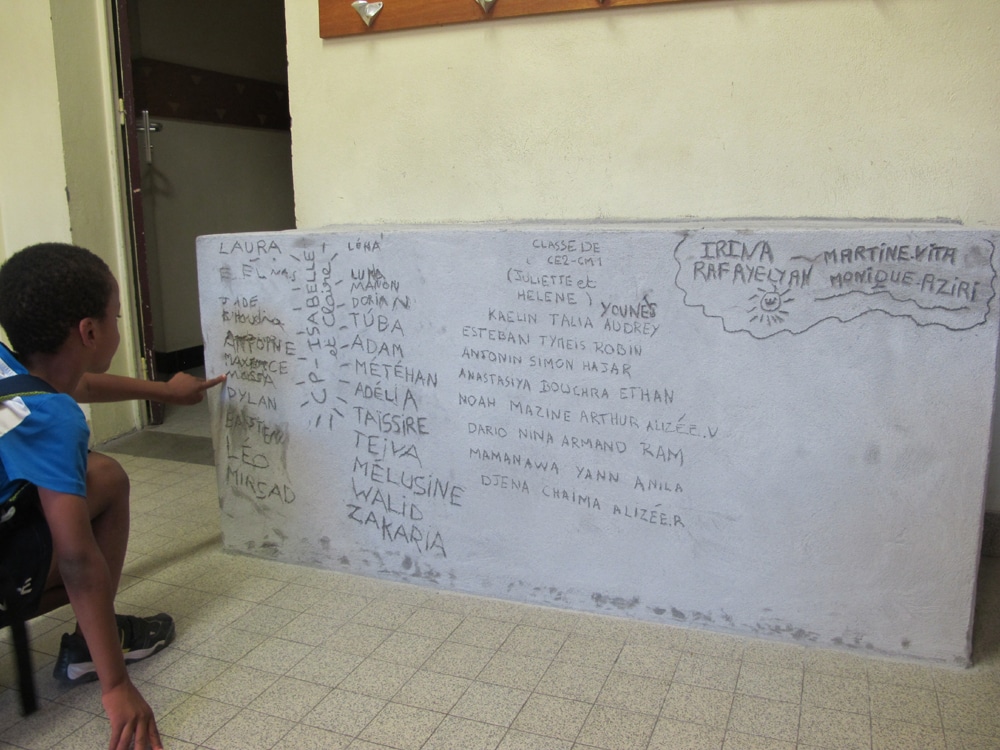 LAURA
ELENAS
JADE
ANTOINE
MAXENCE
MOSSA
DYLAN
BASTIEN
LÉO
MIRSAD
CP-ISABELLE
et Claire
LÉHA
LUNA
MANON
DORIAN
TÚBA
ADAM
MÉTÉHAN
ADÉLIA
TAÏSSIRE
TEIVA
MÉLUSINE
WALID
ZAKARIA
CLASSE DE
CE2-CM1
(JULIETTE et
HELENE)
YOUNÈS
KAELIN TALIA AUDREY
ESTEBAN TYMEIS ROBIN
ANTONIN SIMON HAJAR
ANASTASIYA BOUCHRA ETHAN
NOAH MAZINE ARTHUR ALIZÉE.V
DARIO NINA ARMAND RAM
MAMANAWA YANN ANILA
DJENA CHAIMA ALIZÉE.R
IRINA
RAFAYELYAN
MARTINE.VITA
MONIQUE.AZIRI